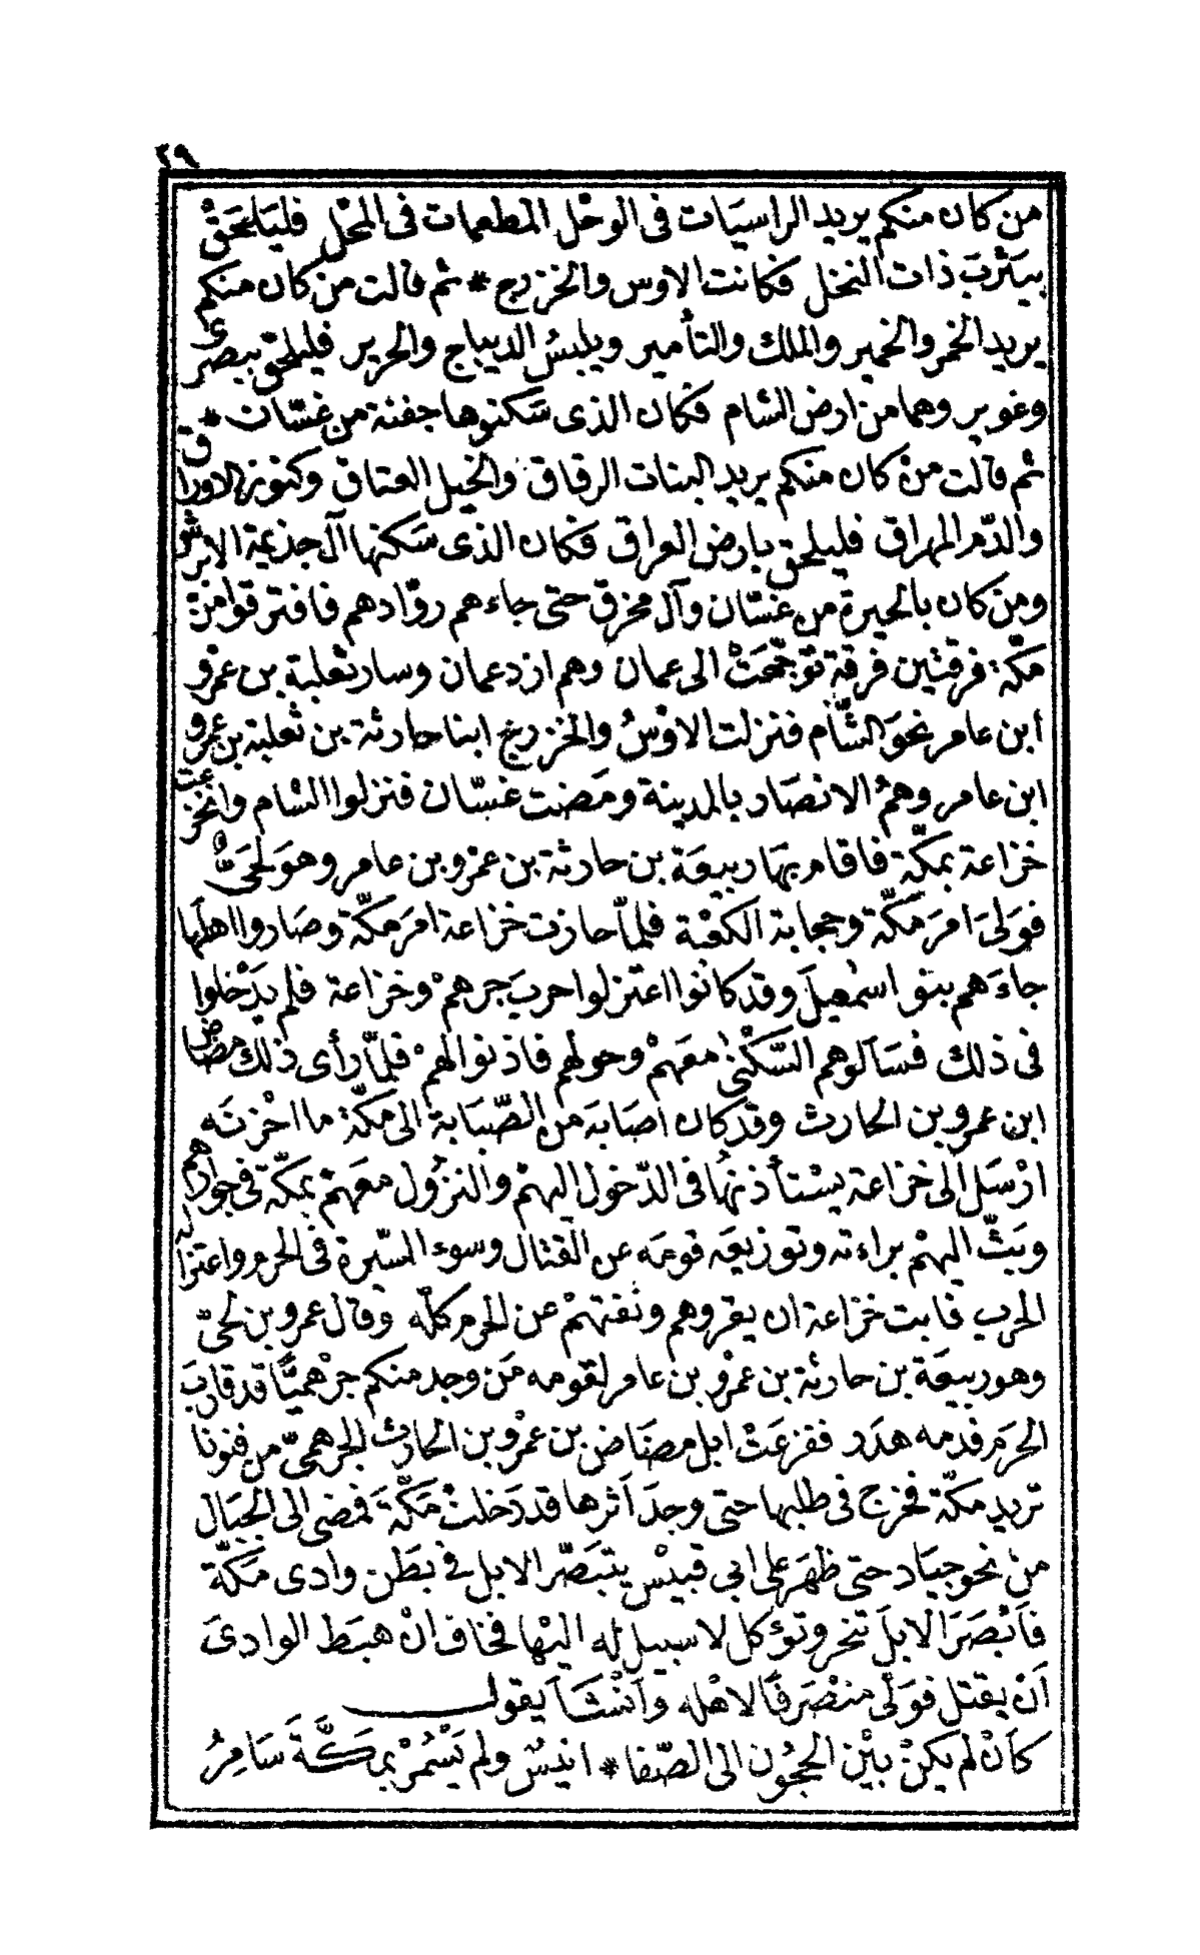 ٢٩
من كان منكم يريد الراسيات فى الوحْل المطعمات فى المحْل فليَلحَقْ
بيَثْربَ ذات النخل فكانت الاوس والخزرج * ثم قالت من كان منكم
يريد الخمر والخمير والملك والتأمير ويلبسُ الديباج والحرير فليلحق ببصرى
وغوير وهما من ارض الشام فكان الذى سَكنوها جفنة من غسّان *
ثم قالت منْ كان منكم يريد البنات الرقاق والخيل العتاق وكنوز الاوراق
والدّم المهراق فليلحق بارض العراق فكان الذى سَكنها آل جذيمة الابرش
ومن كان بالحيرة من غسّان وآل محرق حتى جاءهم روّادهم فافترقوا منْ
مكّة فرقتين فرقة توجّهَتْ الى عمان وهم ازد عمان وسار ثعْلبة بن عمْرو
ابن عامر نحوَ الشّام فنزلت الاوْسُ والخزرج ابنا حارثة بن ثعلبة بن عمرو
ابن عامر وهمُ الانصَار بالمدينة ومَضت غسّان فنزلوا الشام وانخزعت
خزاعة بمكّة فاقام بها ربيعَة بن حارثة بن عمْرو بن عامر وهوَ لحَىٌّ
فوَلىَ امرَ مكّة وحجابة الكعْبة فلمّا حازت خزاعة امرَ مكّة وصَاروا اهلَها
جاءَهم بنو اسْمعيلَ وقد كانوا اعتزلوا حربَ جرهمْ وخزاعة فلم يدَخلوا
فى ذلك فسَألوهم السَّكْنى معَهمْ وحولهم فاذنوا لهمْ فلمّا رأى ذلك مضاض
ابن عمرو بن الحارث وقد كان اصَابَه من الصّبَابة الى مكّة ما احْزنَه
ارْسَل الى خزاعة يسْتأذنهَا فى الدّخول اليهمْ والنزُول معَهمْ بمكّة فى جوارهم
وبَثّ اليهمْ براءته وتوزيعَه قومَه عن القتال وسوء السّيرة فى الحرم واعتزاله
الحرب فابت خزاعة ان يقروهم ونفتهمْ عن الحرم كلّه وقال عمرو بن لحىّ
وهو ربيعَة بن حارثة بن عمْرو بن عامر لقومه مَن وجد منكم جرْهميًّا قد قاربَ
الحرَم فدمه هدَر ففزعَتْ ابل مضَاض بن عمْرو بن الحارث الجرهمىّ من قنونا
تريد مكّة فخرج فى طلبها حتى وجدَ أثرها قد دَخلتْ مَكّةَ فمضى الى الجبَال
منْ نحو جيَاد حتى ظهَر على ابي قبيْس يتبَصّر الابل في بطَن وادى مَكّة
فأبْصَرَ الابلَ تنحر وتؤكل لا سبيل له اليْها فخاف انْ هبَط الوادىَ
أنْ يقتل فوَلّى منْصَرفًا لاهْله وأنشَأ يقول
كأنْ لم يكنْ بيْن الحجُون الى الصّفا * انيسٌ ولم يَسْمُرْ بمكَّةَ سَامِرُ